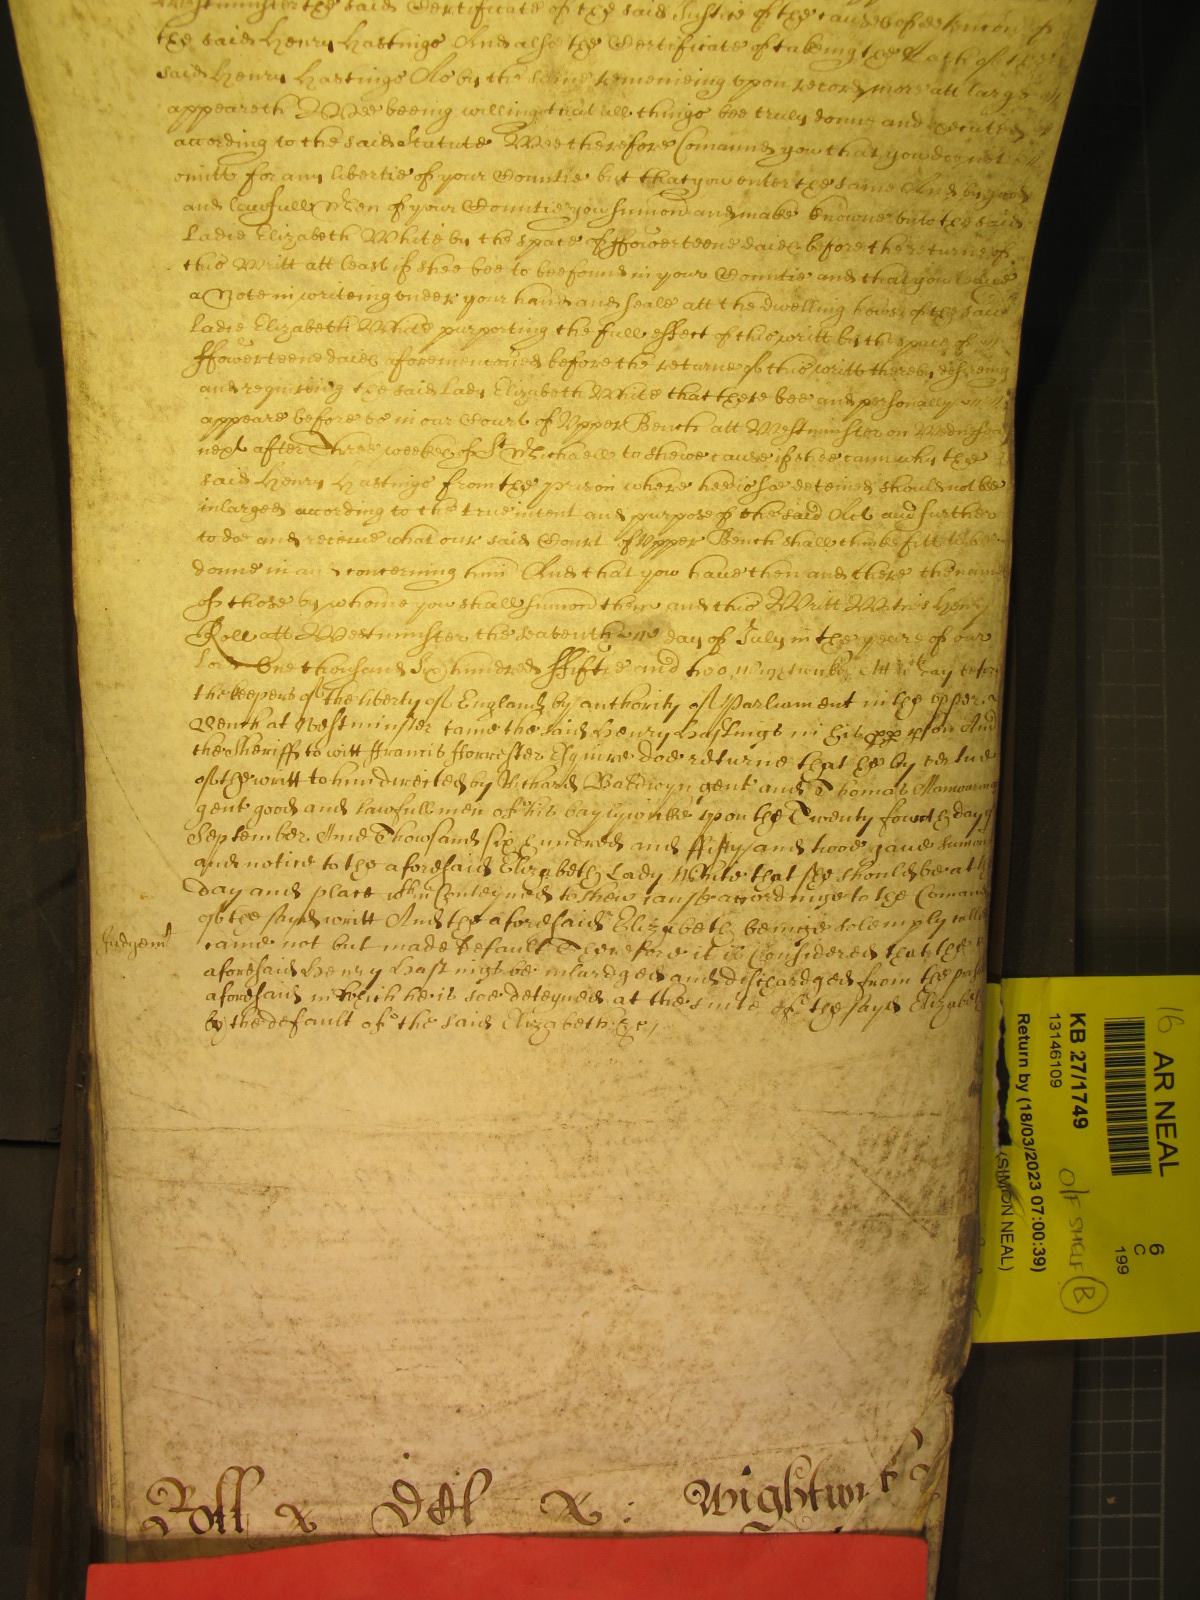 Westminster the said Certificate of the said Justice of the causes of detencon of
the said Henry Hastings And alsoe the Certificate of takeing the Oath of the
said Henry Hastings As by the same remeineing upon record more att large
appeareth Wee beeing willing that all things bee truly donne and executed
according to the said Statute Wee therefore Comannd you that you doe not
omitt for any libertie of your Countie but that you enter the same And by good
and lawfull Men of your Countie you sumon and make knowne unto the said
Ladie Elizabeth White by the space of ffowerteene daies before the returne of
this Writt att least if shee bee to bee found in your Countie and that you leave
a Note in writeing under your hand and seale att the dwelling howse of the said
Ladie Elizabeth White purporting the full effect of this writt by the space of
ffowerteene daies aforemencioned before the returne of this writt thereby desireing
and requireing the said Lady Elizabeth White that shee bee and personally
appeare before us in our Court of Upper Bench att Westminster on Wednesday
next after Three weekes of St Michaell to shewe cause if shee cann why the
said Henry Hastings from the prison where hee is soe deteined should not be
inlarged according to the true intent and purpose of the said Act and further
to doe and receive what our said Court of Upper Bench shall thinke fitt to bee
donne in and concerning him And that you have then and there the names
of those by whome you shall sumon them and this Writt Wittnes Henry
Roll att Westminster the seaventh day of July in the yeare of our
Lord One thousand Six hundred ffiftie and two Wightwicke Att wch day before
the keepers of the liberty of England by authority of Parliament in the upper
Bench at Westminster came the said Henry Hastings in his pp pson And
the Sheriff to witt Francis Forrester Esquire doe returne that he by vertue
of the writt to him directed by Richard Baldwyn gent and Thomas
gent good and lawfull men of his baylywicke upon the Twenty fowrth day of
September One Thowsand six hundred and fifty and twoe gave sumons
and notice to the aforesaid Elizabeth Lady White that she should be at the
day and place wthin Conteyned to shew cause accordinge to the Comand
of the sayd writt And the aforesaid Elizabeth beinge solemply called
came not but made default Therefore it is Considered that the
Judgemt
aforesaid Henry Hastings be inlardged and dischardged from the prison
aforesaid in which he is soe deteyned at the suite of the sayd Elizabeth
by the default of the said Elizabeth &c
Roll x Del x : Wightwick
16 AR NEAL
6
C
199
KB 27/1749
13146109
O/F SHELF B
Return by (18/03/2023 07:00:39)
(SIMON NEAL)